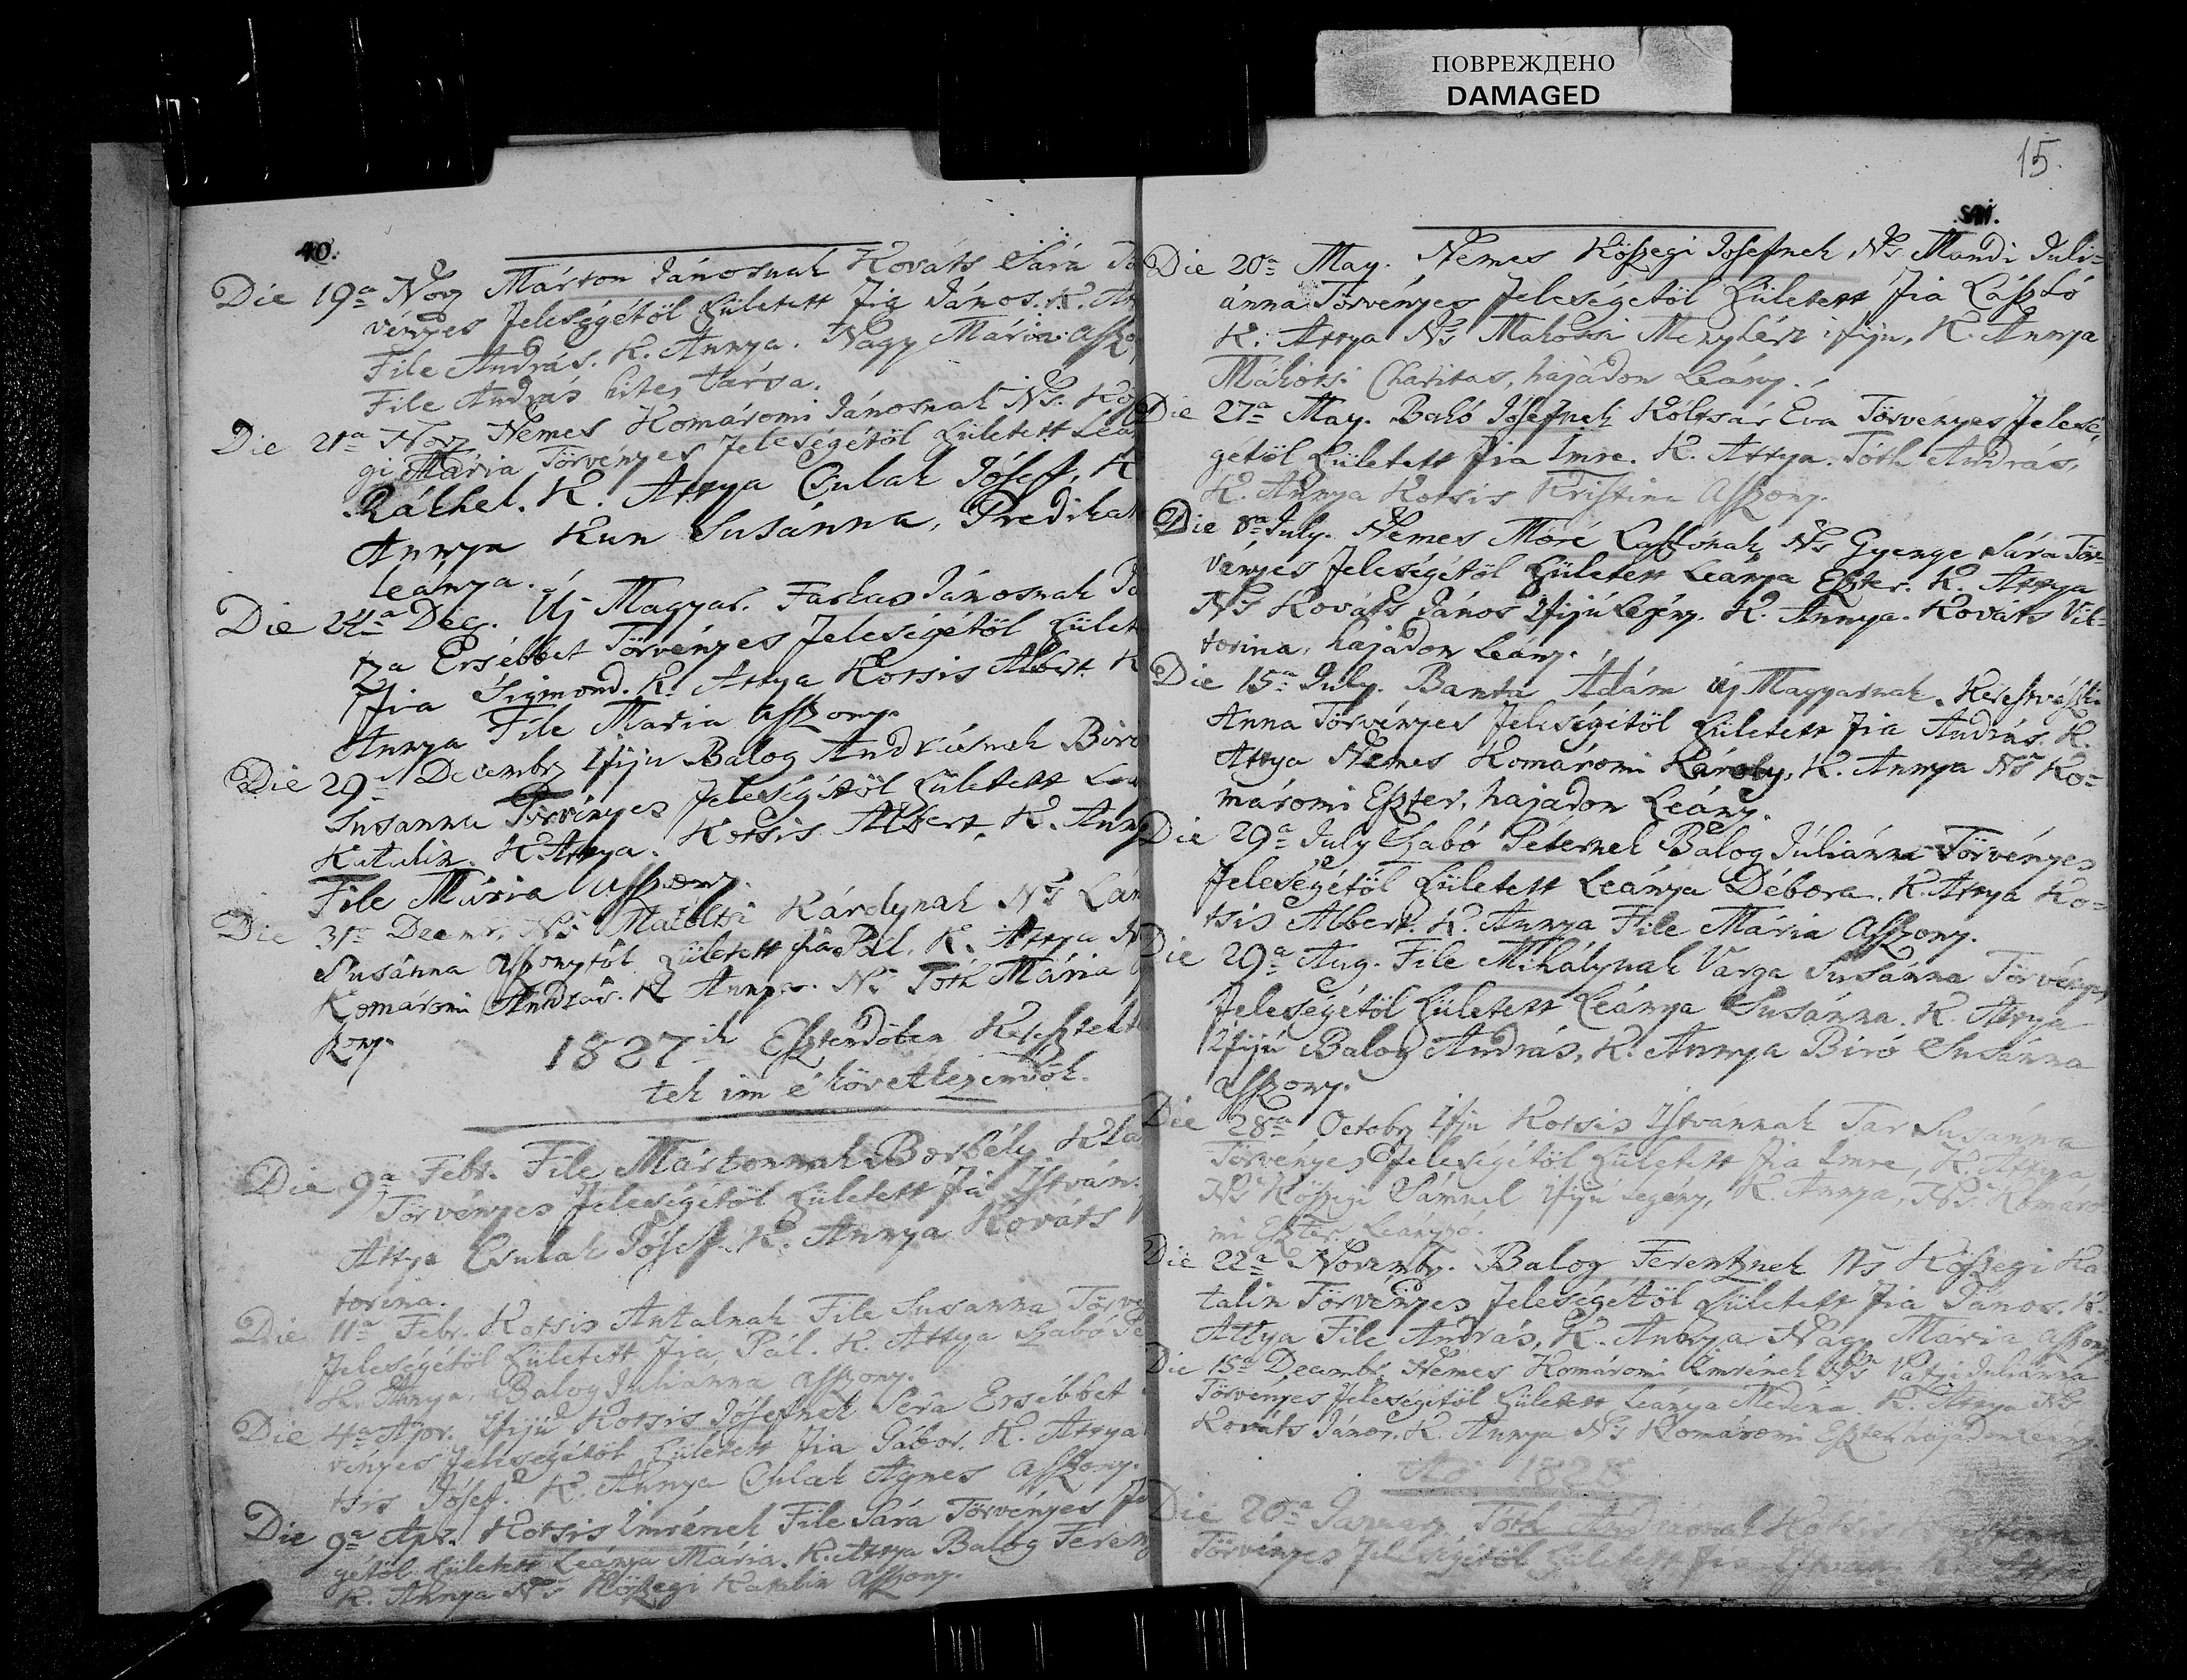 ПОВРЕЖДЕНО
DAMAGED
40.
Die 19a Nov Márton Jánosnak Kováts Sára
vényes feleségétöl született fia János. K.
File András. K. Annya. Nagy Mária
File András hites társa.
Die 21a Nov Nemes Komáromi Jánosnak Ns.
gi Mária Törvényes feleségétöl született
Rákhel. K. Attya Csulak Jósef, K
Annya Kun Susánna, Predikat
leánya.
Die 24a Dec. Új Magyar. Farkas Jánosnak
Ersébbet Törvényes feleségétöl
fia Sigmond. K. Attya Kotsis Albert. K
Annya File Maria Aszszony.
Die 29a Decembr Ifiju Balog Andrásnak
Susanna Törvényes feleségétöl született
Katalin. K. Attya. Kotsis Albert, K. Anny
File Mária Aszszony.
Die 31a Decemr. Ns Károlynak Ns
Susánna Aszszonytól született fia Pál, K. Attya
Komáromi András. K Annya. Ns Toth Mária
szony.
1827ik Esztendöben
tek im é következendök.
Die 9a Febr. File Mártonnak Borbély
Törvényes feleségétöl született fia István.
Attya Csulak Jósef. K. Annya Kováts
torina.
Die 11a Febr. Kotsis Antalnak File Susanna
feleségétöl született fia Pál. K. Attya Szabó
K. Annya, Balog Julianna aszszony.
Die 4a Apr. Ifijú Kotsis Jósefnek Ersébbet
vényes feleségétöl született fia Gábor. K. Attya
tsis Jósef. K. Annya Csulak Agnes aszszony.
Die 9a Apr. Kotsis Imrének File Sára Törvényes
gétöl született Leánya Mária. K. Attya Balog
K. Annya Ns Köszegi Katalin aszszony.
15.
Die 20a May. Nemes Köszegi Josefnek, Ns Mandi Juli=
ánna Törvényes feleségétöl született fia László
K. Attya Ns ifiju, K. Annya
Charitas, hajadon Leány.
Die 27a May. Bakó Jósefnek Eva Törvényes felesé,
gétöl született fia Imre. K. Attya. Tóth András,
K. Annya Kotsis Kristina Aszszony.
Die 8a July. Nemes Moré Laszlónak, Ns Gyenge Sára Tör=
vényes feleségétöl született Leánya Eszter. K. Attya
Ns Kováts János Ifijú Legény. K. Annya. Kováts Vik=
torina, hajadon Leány.
Die 15a July. Banta Adám új Magyarnak,
Anna Törvényes feleségétöl született fia András. K.
Attya Nemes Komáromi Károly, K. Annya Ns Ko=
máromi Eszter, hajadon Leány.
Die 29a July Szabó Péternek Balog Júliánna Törvényes
feleségétöl született Leánya Débora. K. Attya Ko=
tsis Albert. K. Annya File Mária Aszszony.
Die 29a Aug. File Mihálynak Varga Susánna Törvényes
feleségétöl született Leánya Susánna. K. Attya
Ifijú Balog András, K. Annya Biró Susánna
aszszony.
Die 28a Octobr Ifju Kotsis Istvannak Tar Susánna
Törvényes feleségétöl született fia Imre, K. Attya
Ns Köszegi Sámuel ifijú legény, K. Annya, Ns. Komáro
mi Eszter Leányzó.
Die 22a Novembr. Balog Ferentznek Ns Köszegi Ka
talin Törvényes feleségétöl született fia János. K.
Attya File András, K. Annya Nagy Mária aszszony
Die 15a Decembr. Nemes Komáromi Imrének Ns Juliánna
Törvényes feleségétöl született Leánya K. Attya Ns
Kováts János, K. Annya Ns Komáromi Eszter hajadon leány.
Ao 1828
Die 20a Tóth Kotsis
Törvényes feleségétöl született fia